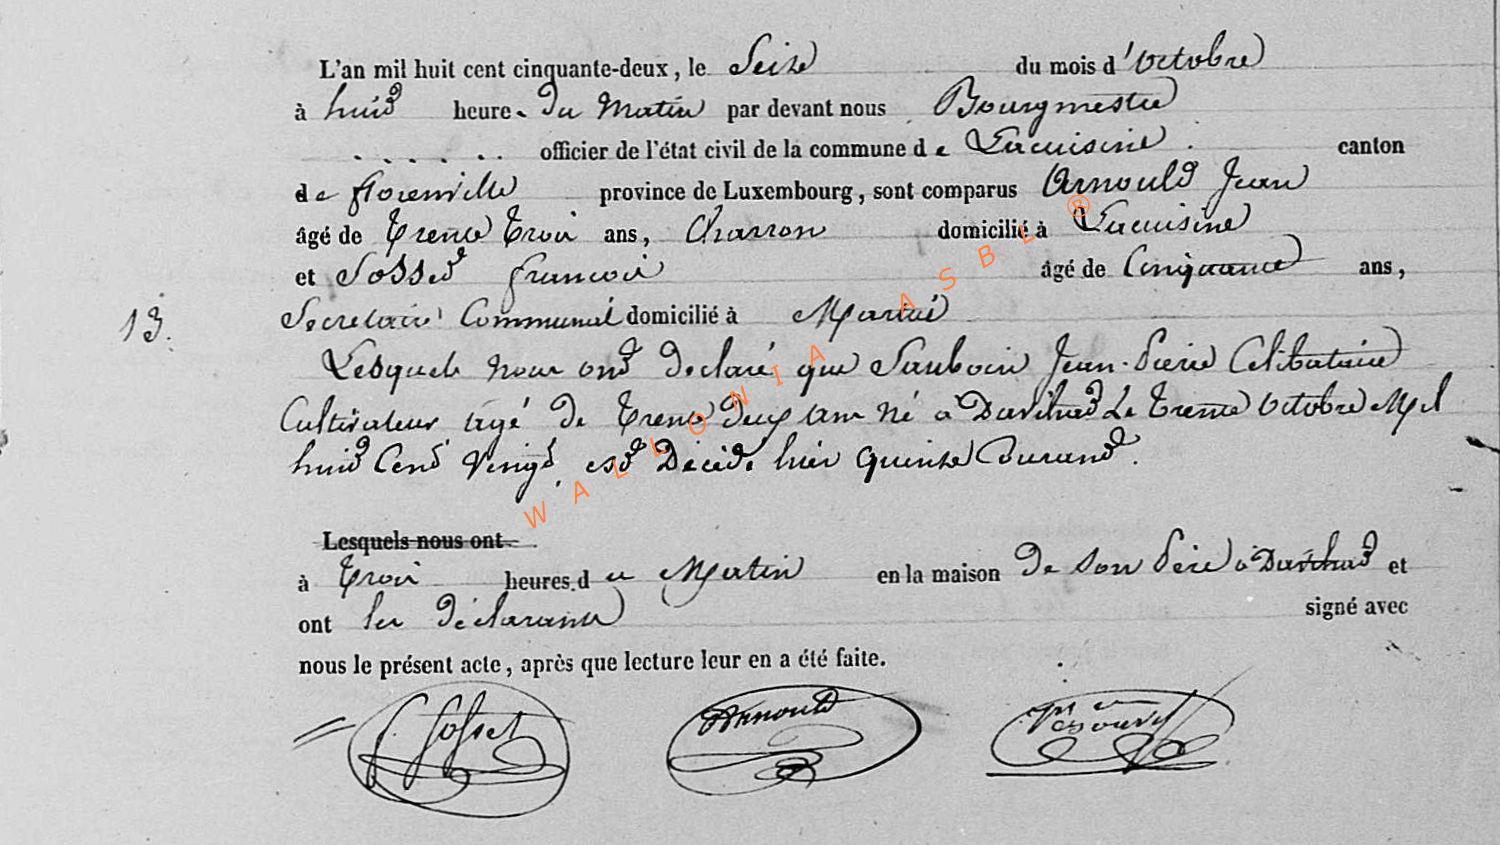 L'an mil huit cent cinquante-deux, le Seize du mois d'Octobre
à huit heure du Matin par devant nous Bourgmestre
. . . . . . officier de l'état civil de la commune de Lacuisine . canton
de florenville province de Luxembourg, sont comparus Arnould Jean
âgé de trente trois ans, Charron domicilié à Lacuisine
et Sosset francois âgé de Cinquante ans,
13. Secretaire Communal domicilié à Martué
Lesquels nous ont déclaré que Jean-Pierre Celibataire
Cultivateur agé de trente deux ans né a le trente Octobre Mil
huit Cent Vingt est Décédé hier quinze Courant.
Lesquels nous ont
à trois heures du Matin en la maison de son Père à et
ont les déclarants signé avec
nous le présent acte, après que lecture leur en a été faite.
f. Sosset Arnould
WALLONIA ASBL ®